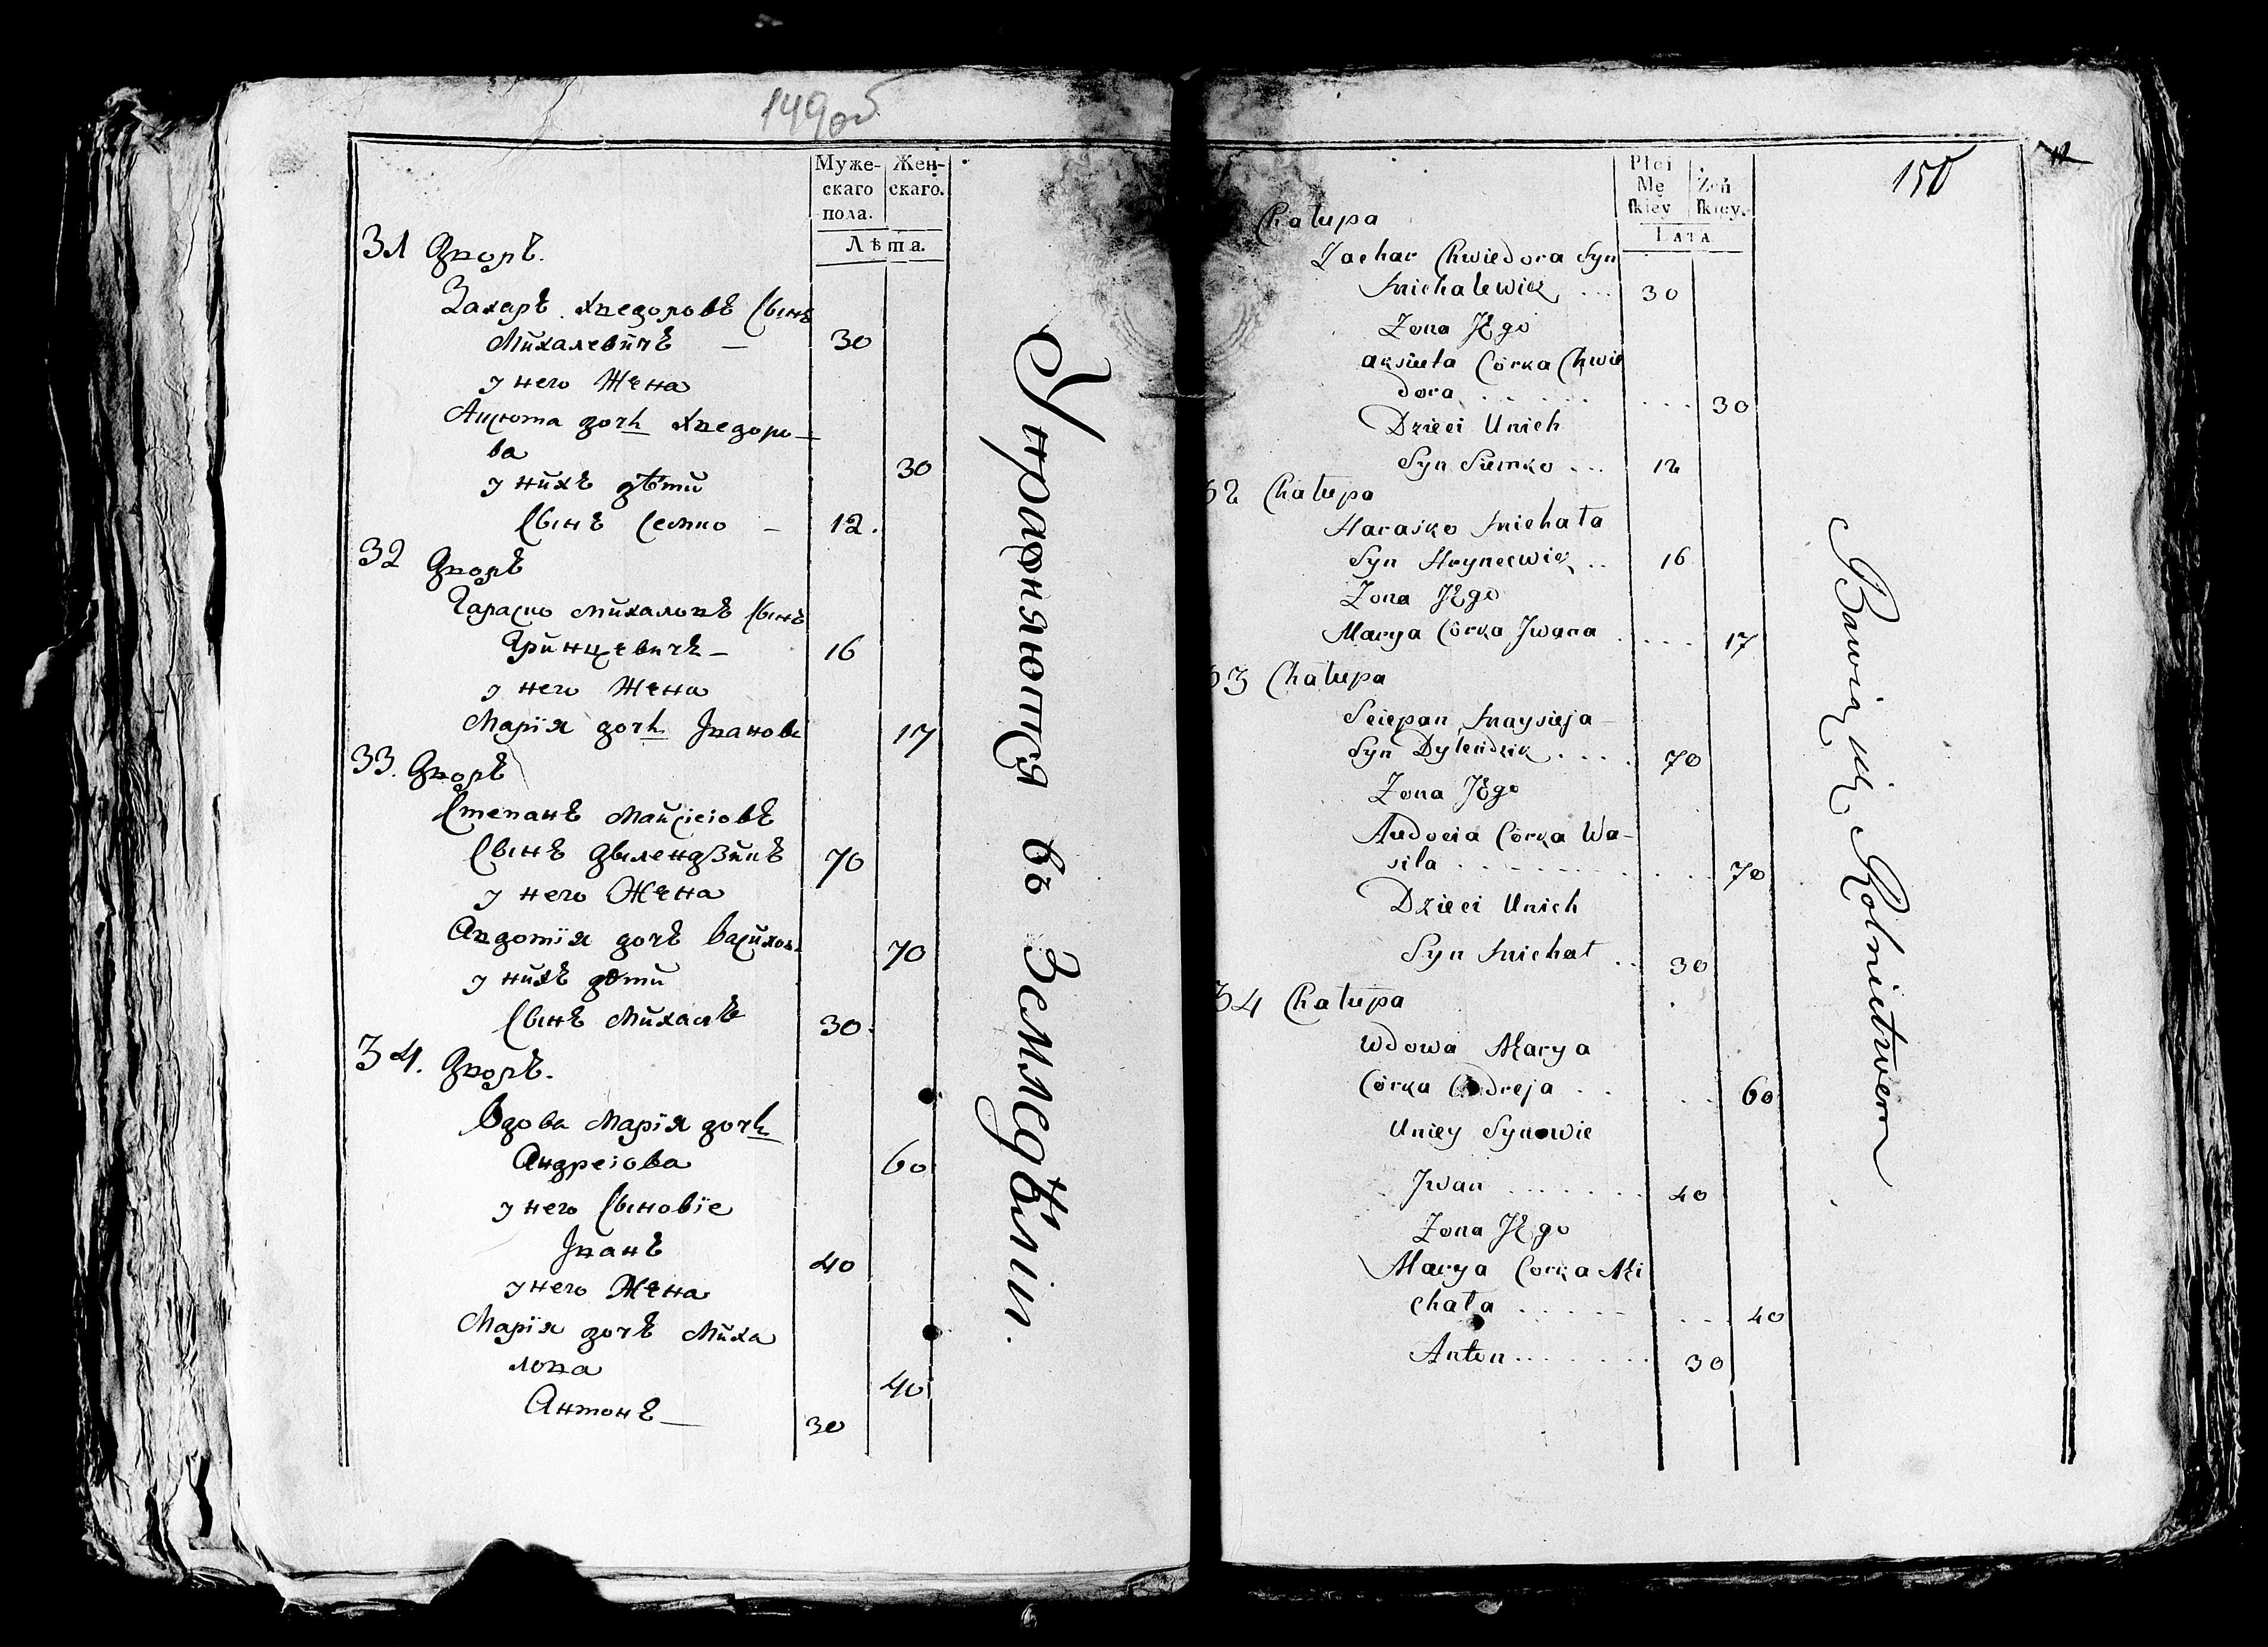 149об
Муже-
скаго
пола.
Жен-
скаго.
Лѣта.
31 Дворъ.
Захаръ Хведоровъ Сынъ
Михалевичъ — 30
у него Жена
Ацюта дочь Хведоро-
ва 30
у нихъ дѣти
Сынъ Семко — 12.
32 Дворъ
Гараско Михаловъ Сынъ
Гринцевичъ — 16
у него Жена
Марїя дочь Іванова 17
33. Дворъ
Степанъ Майсіеіовъ
Сынъ Дылендзикъ 70
у него Жена
Авдотїя дочъ Васильов. 70
у нихъ дѣти
Сынъ Михалъ 30.
34. Дворъ.
Вдова Марїя дочь
Андреіова 60
у него Сыновїе
Іванъ 40
у него Жена
Марїя дочъ Миха
лова 40
Антонъ — 30
Упражняются въ Земледѣліи.
150
12
Płci
Mę
skiey
Żeń
skiey.
Lata
Chałupa
Zachar Chwiedora Syn
Michalewicz ... 30
Zona Jego
Aksiuta Córka Chwie
dora ...... ... 30
Dzieci Unich
Syn Siemko ... 12
32 Chałupa
Haraśko Michała
Syn Hryncewicz .. 16
Zona Jego
Marya Córka Jwana .... 17
33 Chałupa
Sciepan Maysieja
Syn Dylendzik .... 70
Zona Jego
Audocia Córka Wa-
sila ........ 70
Dzieci Unich
Syn Michał .. 30
34 Chałupa
Wdowa Marya
Córka Ondreja .. .. 60
Uniey Synowie
Jwan ....... 40
Zona Jego
Marya Corka Mi
chała ..... ... 40
Anton ....... 30
Bawią się Rolnictwem